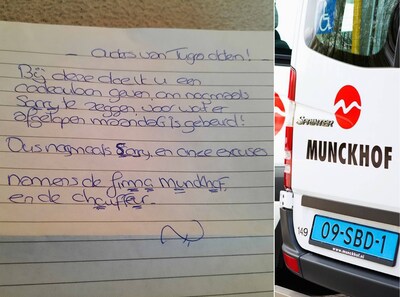 ouders van
Bij deze doe ik u een
cadeaubon geven, om nogmaals
Sorry te zeggen voor wat er
afgelopen maandag is gebeurd!
Dus nogmaals Sorry, en onze excuses
namens de firma munckhof,
en de chauffeur.
SPRINTER
MUNCKHOF
149
09-SBD-1
www.munckhof.nl